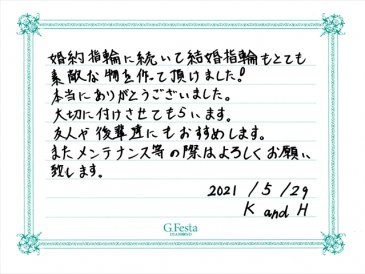 婚約指輪に続いて結婚指輪もとても
素敵な物を作って頂けました!
本当にありがとうございました。
大切に付けさせてもらいます。
友人や後輩達にもおすすめします。
またメンテナンス等の際はよろしくお願い
致します。
2021/5/29
K and H
G.Festa
DIAMOND